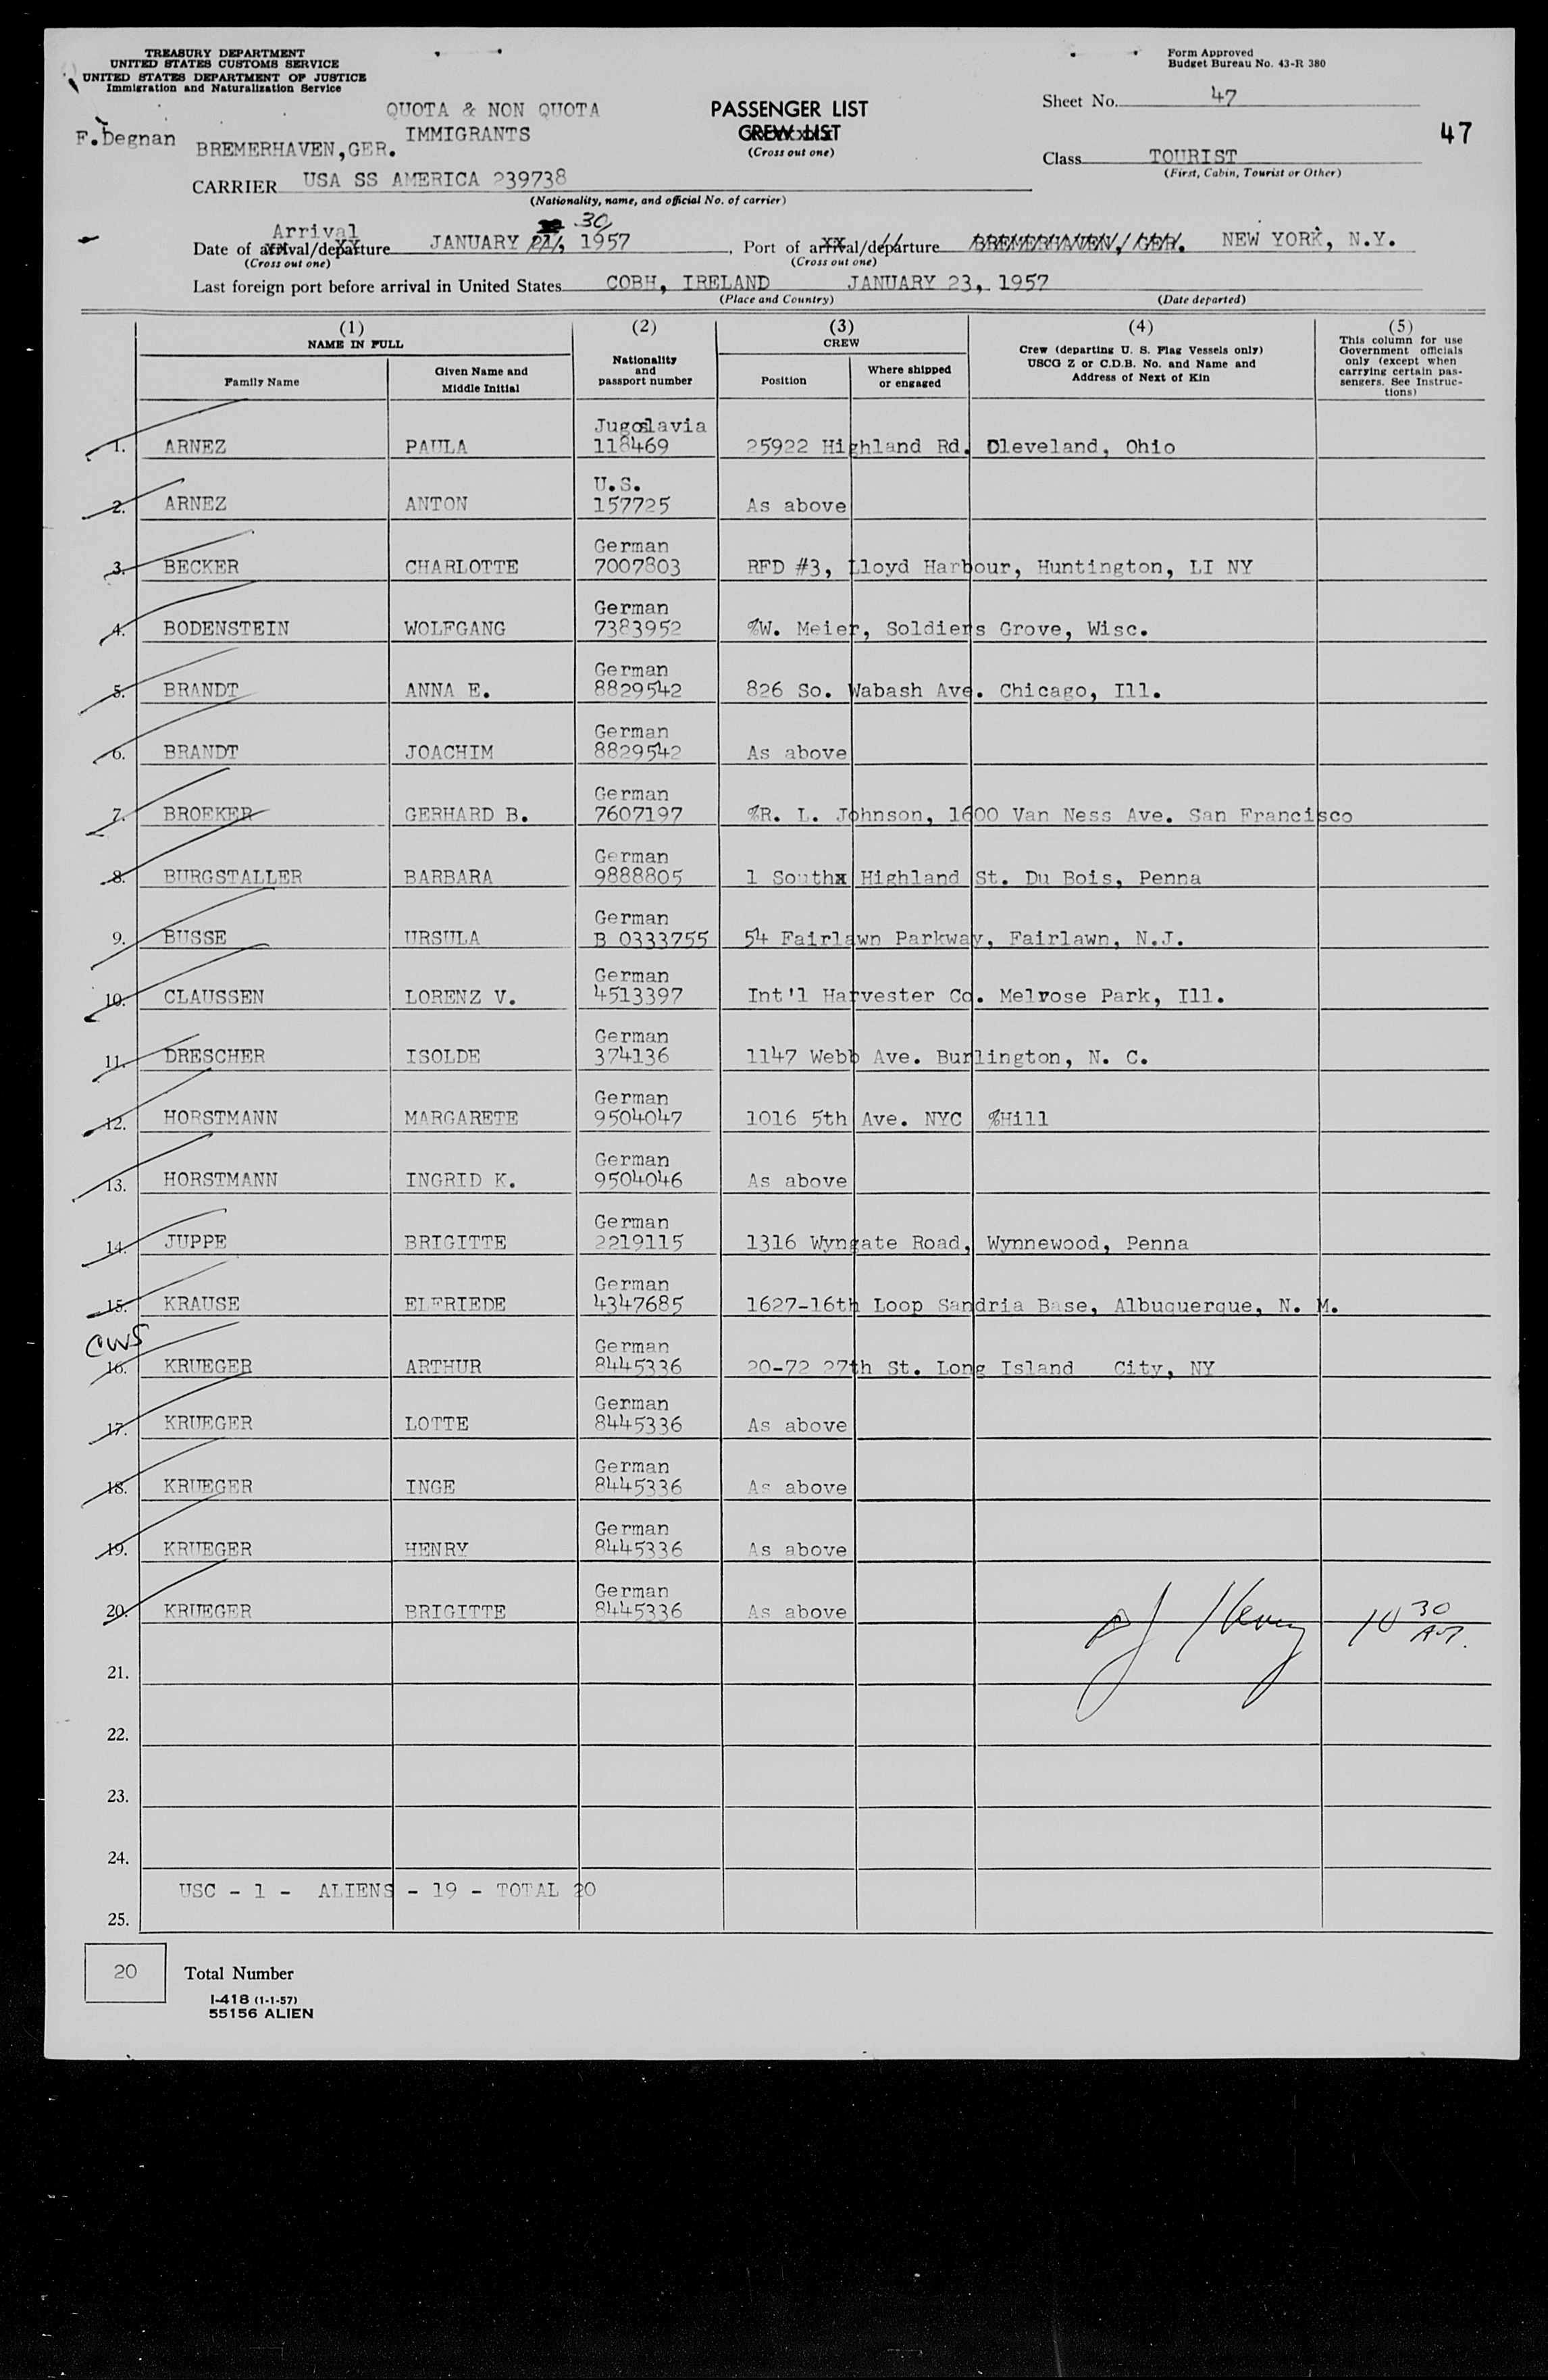 TREASURY DEPARTMENT
UNITED STATES CUSTOMS SERVICE
UNITED STATES DEPARTMENT OF JUSTICE
Immigration and Naturalization Service
Form Approved
Budget Bureau No. 43-R 380
QUOTA & NON QUOTA
IMMIGRANTS
PASSENGER LIST
CREW LIST
(Cross out one)
Sheet No. 47
47
F.Degnan
BREMERHAVEN,GER.
Class TOURIST
(First, Cabin, Tourist or Other)
CARRIER USA SS AMERICA 239738
(Nationality, name, and official No. of carrier)
Arrival
30
Date of arrival/departure JANUARY 21, 1957, Port of arrival/departure BREMERHAVEN, GER. NEW YORK, N.Y.
(Cross out one) (Cross out one)
Last foreign port before arrival in United States COBH, IRELAND JANUARY 23, 1957
(Place and Country) (Date departed)
(1) NAME IN FULL
Family Name
Given Name and Middle Initial
(2) Nationality and passport number
(3) CREW
Position
Where shipped or engaged
(4) Crew (departing U. S. Flag Vessels only) USCG Z or C.D.B. No. and Name and Address of Next of Kin
(5) This column for use Government officials only (except when carrying certain passengers. See Instructions)
Jugoslavia
1. ARNEZ PAULA 118469 25922 Highland Rd. Cleveland, Ohio
U.S.
2. ARNEZ ANTON 157725 As above
German
3. BECKER CHARLOTTE 7007803 RFD #3, Lloyd Harbour, Huntington, LI NY
German
4. BODENSTEIN WOLFGANG 7383952 %W. Meier, Soldiers Grove, Wisc.
German
5. BRANDT ANNA E. 8829542 826 So. Wabash Ave. Chicago, Ill.
German
6. BRANDT JOACHIM 8829542 As above
German
7. BROEKER GERHARD B. 7607197 %R. L. Johnson, 1600 Van Ness Ave. San Francisco
German
8. BURGSTALLER BARBARA 9888805 1 Southx Highland St. Du Bois, Penna
German
9. BUSSE URSULA B 0333755 54 Fairlawn Parkway, Fairlawn, N.J.
German
10. CLAUSSEN LORENZ V. 4513397 Int'l Harvester Co. Melrose Park, Ill.
German
11. DRESCHER ISOLDE 374136 1147 Webb Ave. Burlington, N. C.
German
12. HORSTMANN MARGARETE 9504047 1016 5th Ave. NYC %Hill
German
13. HORSTMANN INGRID K. 9504046 As above
German
14. JUPPE BRIGITTE 2219115 1316 Wyngate Road, Wynnewood, Penna
German
15. KRAUSE ELFRIEDE 4347685 1627-16th Loop Sandria Base, Albuquerque, N. M.
CWS
German
16. KRUEGER ARTHUR 8445336 20-72 27th St. Long Island City, NY
German
17. KRUEGER LOTTE 8445336 As above
German
18. KRUEGER INGE 8445336 As above
German
19. KRUEGER HENRY 8445336 As above
German
20. KRUEGER BRIGITTE 8445336 As above
10 30 AM.
21.
22.
23.
24.
USC - 1 - ALIENS - 19 - TOTAL 20
25.
20 Total Number
I-418 (1-1-57)
55156 ALIEN